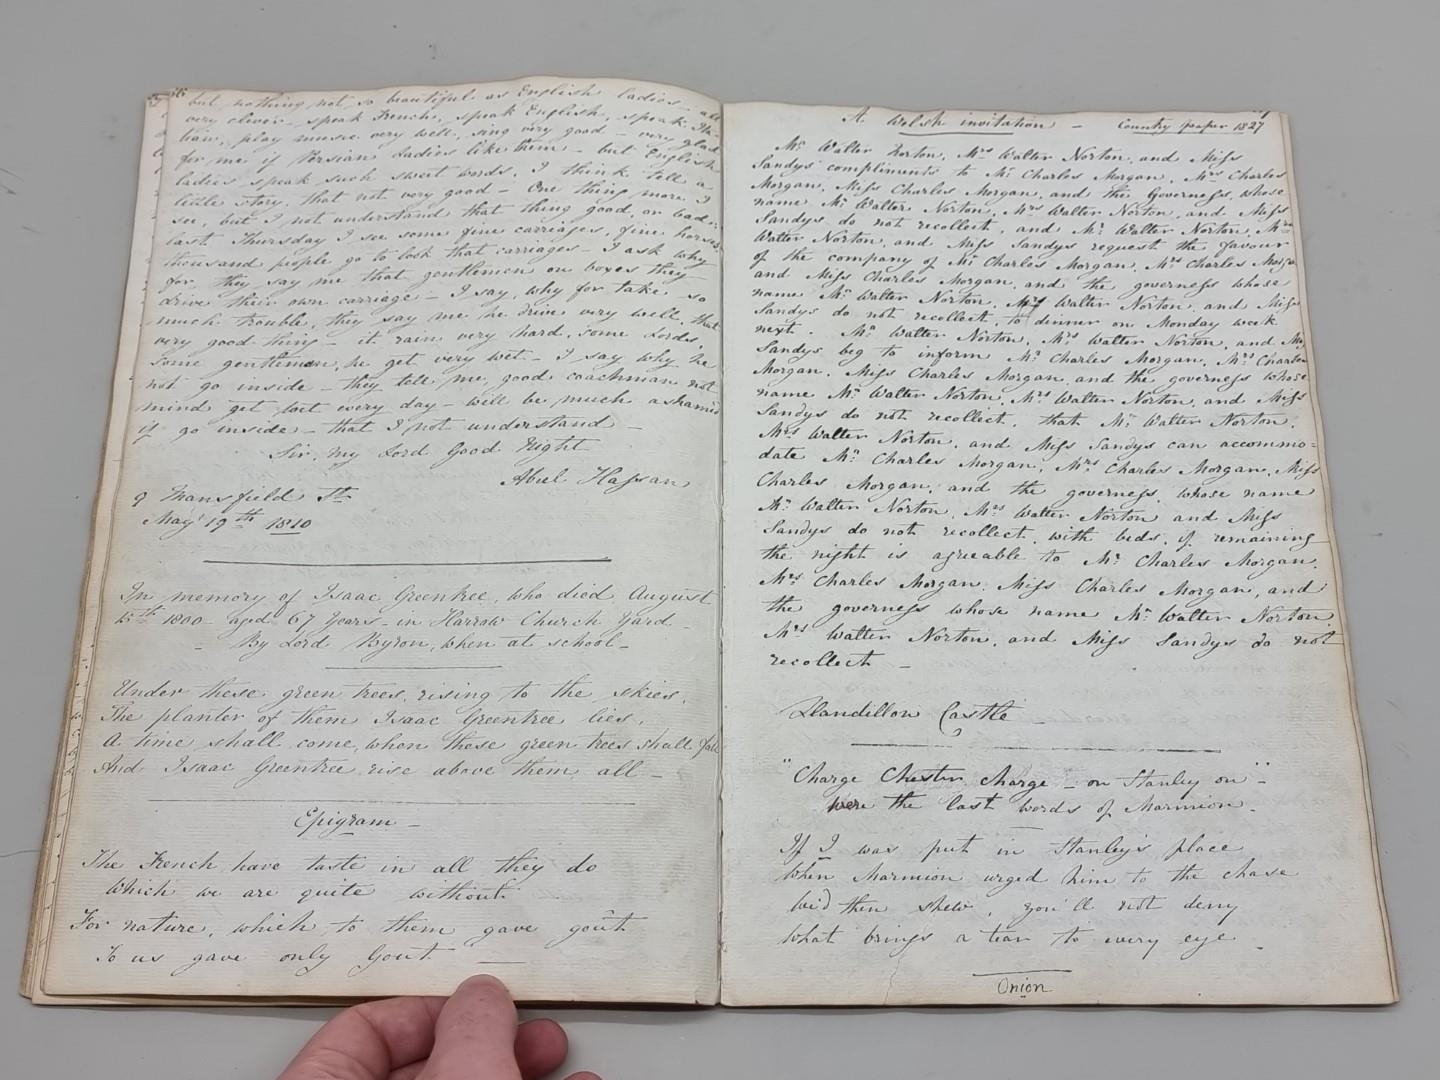 56
but nothing not so beautiful as English ladies - all
very clever - speak French, speak English, speak Ita-
lian, play music very well, sing very good - very glad
for me if Persian Ladies like them - but English
ladies speak such sweet words, I think tell a
little story, that not very good - One thing more I
see, but I not understand that thing good, or bad:
last Thursday I see some fine carriages, fine horses,
thousand people go to look that carriages - I ask why
for, they say me that gentlemen on boxes they
drive their own carriage - I say, why for take so
much trouble, they say me he drive very well, that
very good thing - it rain very hard, some Lords,
some gentlemen, he get very wet - I say why he
not go inside - they tell me, good coachman not
mind get wet every day - will be much ashamed
if go inside - that I not understand -
Sir, my Lord Good Night
Abul Hassan
9 Mansfield St
May 19th 1810
In memory of Isaac Greentree, who died August
15th 1800 aged 67 Years - in Harrow Church Yard -
- By Lord Byron, when at school -
Under these green trees, rising to the skies,
The planter of them Isaac Greentree lies,
A time shall come, when these green trees shall fall
And Isaac Greentree rise above them all -
Epigram -
The French have taste in all they do
Which we are quite without
For nature, which to them gave goût
To us gave only Gout -
A Welsh invitation - Country paper 1827
Mr Walter Norton, Mrs Walter Norton, and Miss
Sandys compliments to Mr Charles Morgan, Mrs Charles
Morgan, Miss Charles Morgan, and the Governess, whose
name Mr Walter Norton, Mrs Walter Norton, and Miss
Sandys do not recollect, and Mr Walter Norton, Mrs
Walter Norton, and Miss Sandys request the favour
of the company of Mr Charles Morgan, Mrs Charles Morgan
and Miss Charles Morgan, and the governess whose
name Mr Walter Norton, Mrs Walter Norton, and Miss
Sandys do not recollect, to dinner on Monday week
next. Mr Walter Norton, Mrs Walter Norton, and Miss
Sandys beg to inform Mr Charles Morgan, Mrs Charles
Morgan, Miss Charles Morgan, and the governess whose
name Mr Walter Norton, Mrs Walter Norton, and Miss
Sandys do not recollect, that Mr Walter Norton,
Mrs Walter Norton, and Miss Sandys can accommo=
date Mr Charles Morgan, Mrs Charles Morgan, Miss
Charles Morgan, and the governess, whose name
Mr Walter Norton, Mrs Walter Norton and Miss
Sandys do not recollect, with beds, if remaining
the night is agreeable to Mr Charles Morgan,
Mrs Charles Morgan, Miss Charles Morgan, and
the governess whose name Mr Walter Norton,
Mrs Walter Norton, and Miss Sandys do not
recollect -
Llandillon Castle -
"Charge Chester charge - on Stanley on" -
were the last words of Marmion -
If I was put in Stanley's place
When Marmion urged him to the chase
We'd then shew, you'll not deny
What brings a tear to every eye -
Onion